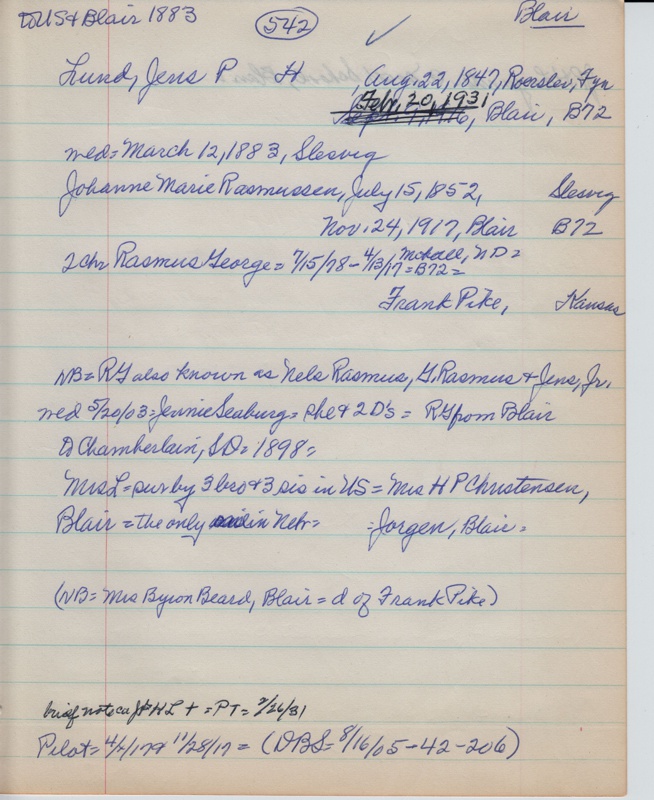 to US & Blair 1883 542 Blair
Lund, Jens P H , Aug. 22, 1847, Roerslev, Fyn
Feb. 20, 1931
, Blair, B72
wed = March 12, 1883, Slesvig
Johanne Marie Rasmussen, July 15, 1852, Slesvig
Nov. 24, 1917, Blair B72
2 chr Rasmus George = 7/15/78 - 4/13/17 = B72 =
ND =
Frank Pike, Kansas
NB = RG also known as Nels Rasmus, G. Rasmus & Jens, Jr.
wed 5/20/03 = Jennie Seaburg = she & 2 D's = RG from Blair
to Chamberlain, SD = 1898 =
Mrs L = surv by 3 bro & 3 sis in US = Mrs H P Christensen,
Blair = the only in Nebr = = Jorgen, Blair =
(NB = Mrs Byron Beard, Blair = d of Frank Pike)
brief note ca JPHL + = PT = 2/26/31
Pilot = 4/ /17 & 11/28/17 = (DBS = 8/16/05 - 42 - 206)